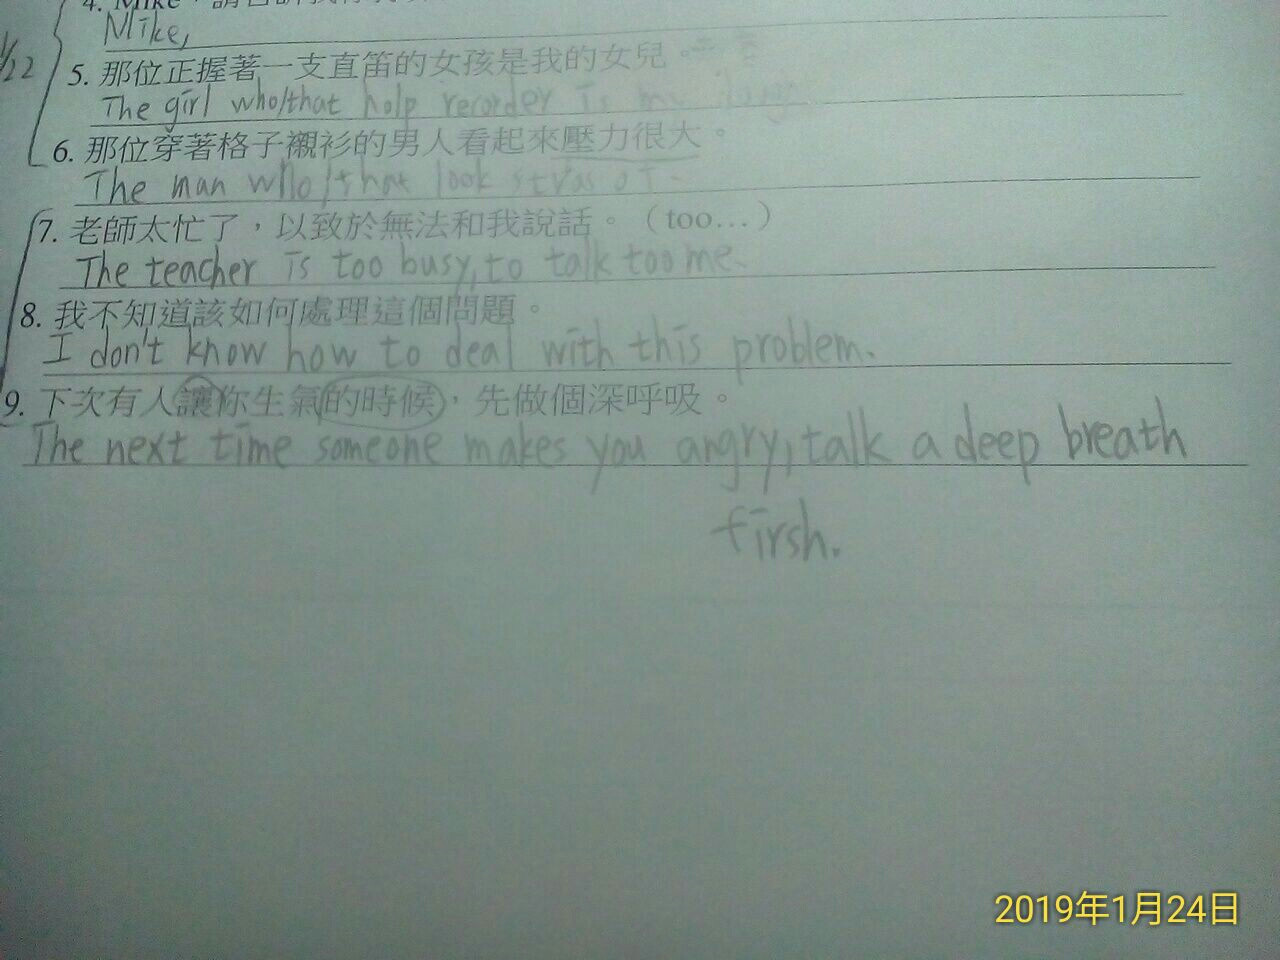 4. Mike，請告訴我
Mike,
1/22
5. 那位正握著一支直笛的女孩是我的女兒。
The girl who/that holp recorder is my
6. 那位穿著格子襯衫的男人看起來壓力很大。
The man who/that look
7. 老師太忙了，以致於無法和我說話。（too…）
The teacher is too busy, to talk too me.
8. 我不知道該如何處理這個問題。
I don't know how to deal with this problem.
9. 下次有人讓你生氣的時候，先做個深呼吸。
The next time someone makes you angry, talk a deep breath
firsh.
2019年1月24日